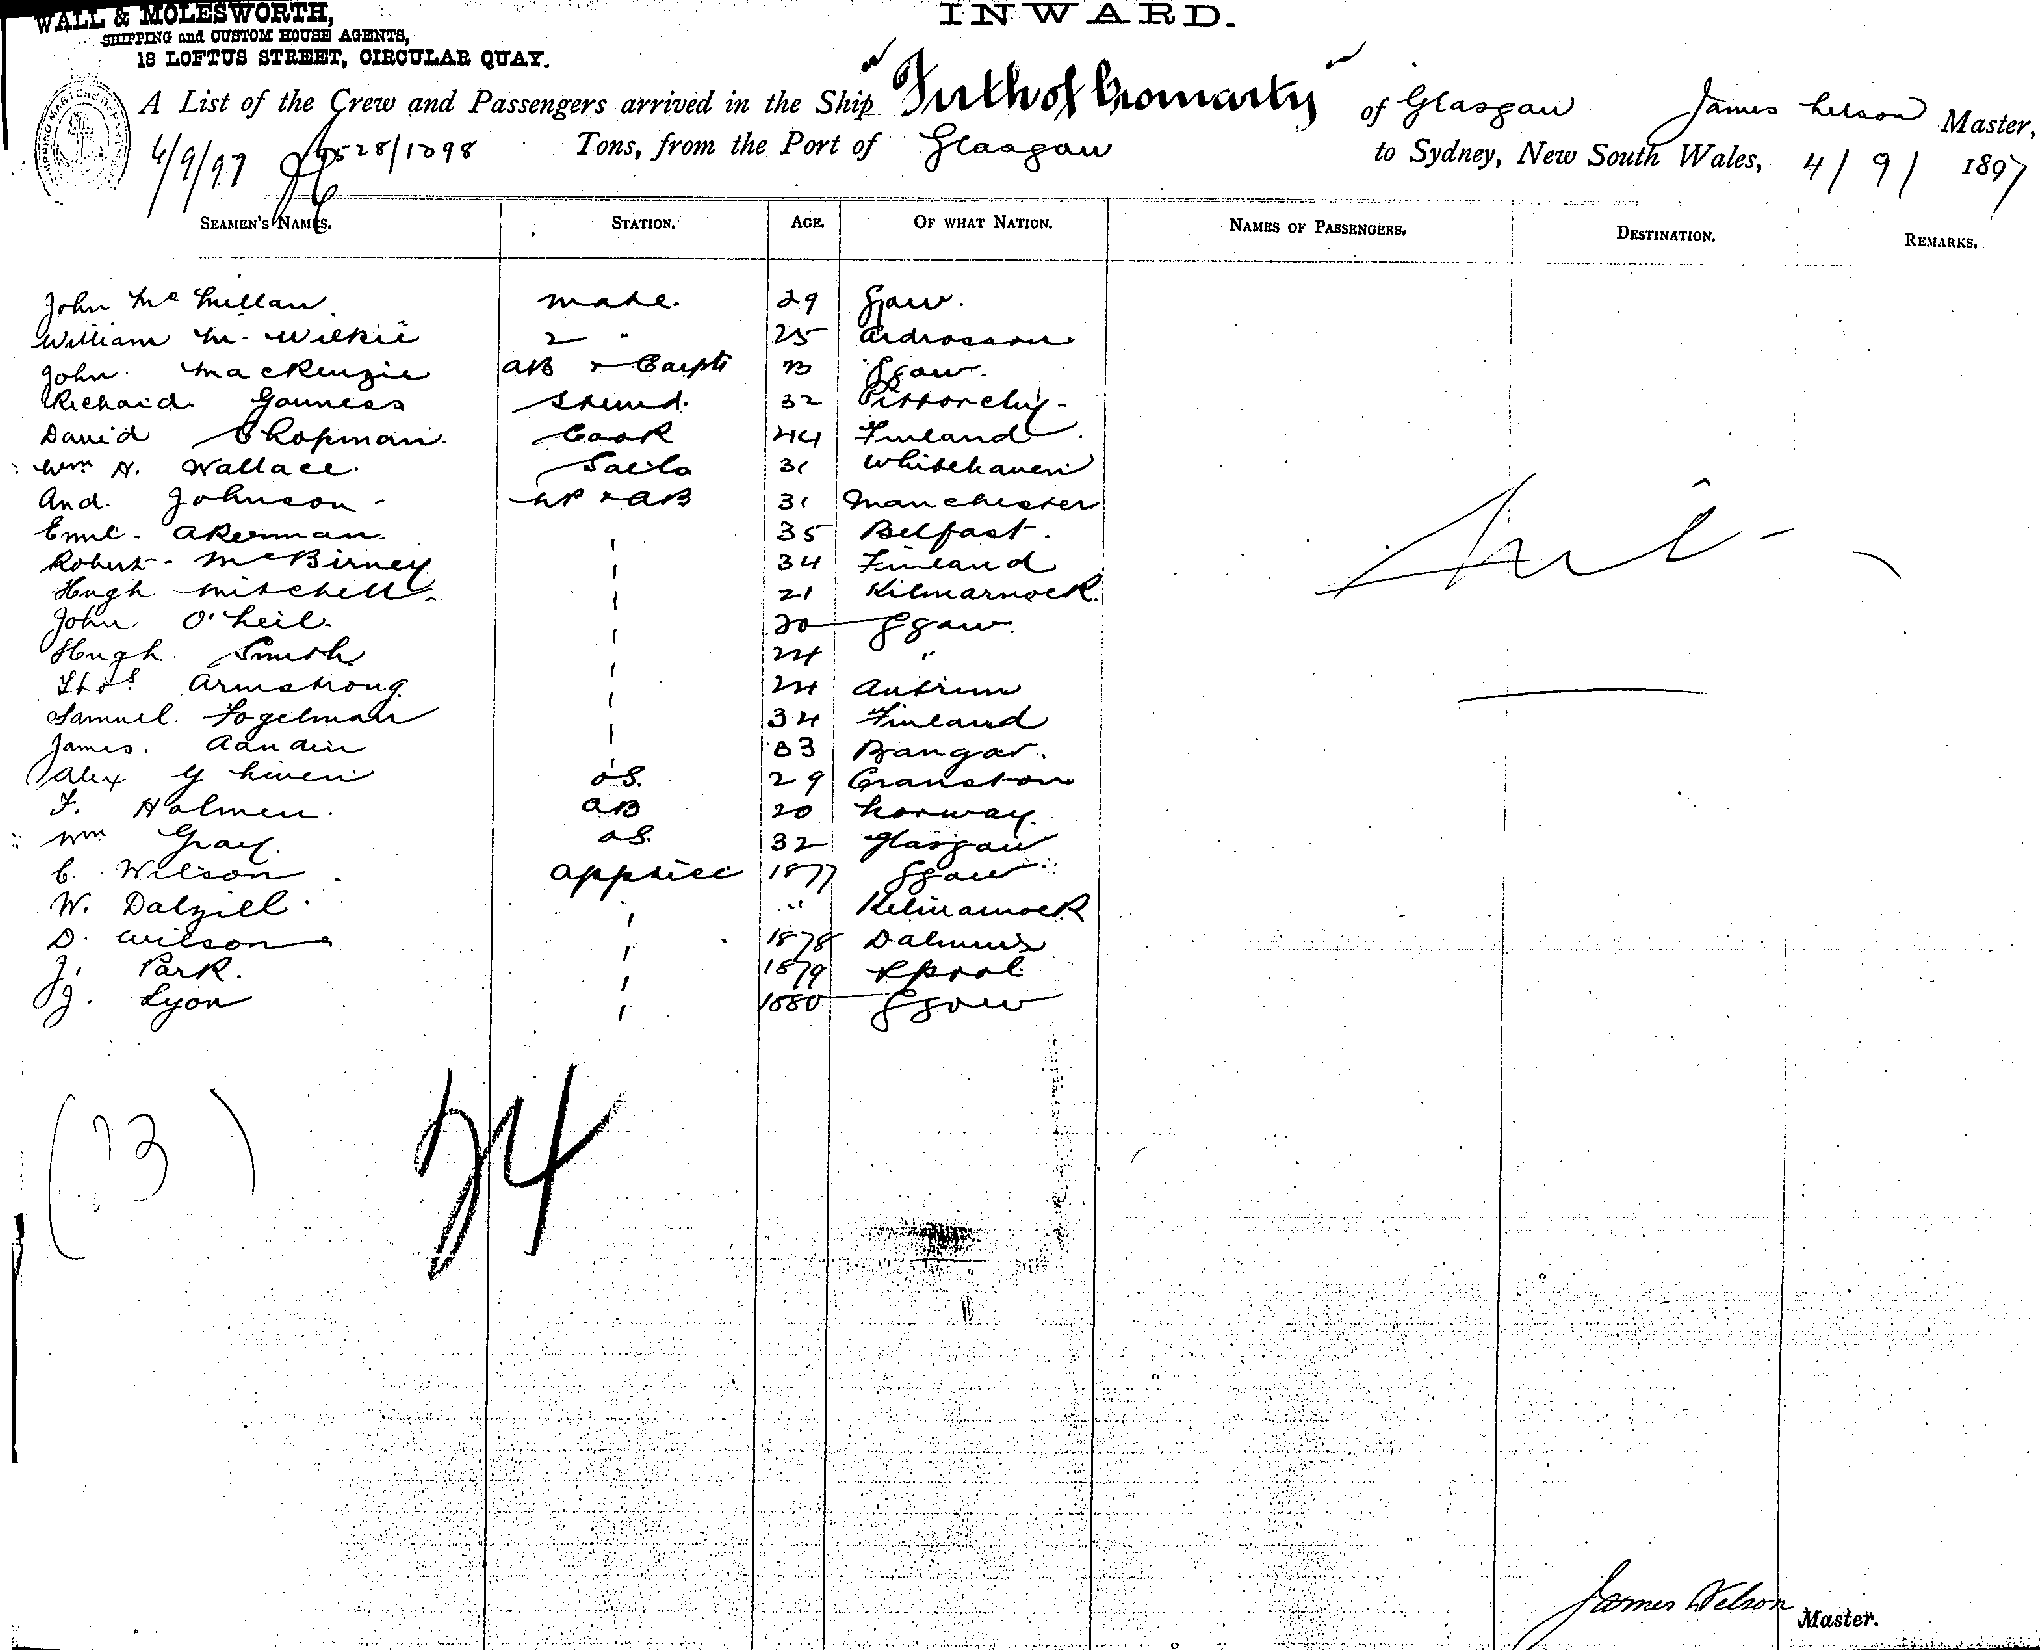 WALL & MOLESWORTH,
SHIPPING and CUSTOM HOUSE AGENTS,
18 LOFTUS STREET, CIRCULAR QUAY.
INWARD.
A List of the Crew and Passengers arrived in the Ship "Firth of Cromarty" of Glasgow James Nelson Master,
4/9/97 1528/1298 Tons, from the Port of Glasgow to Sydney, New South Wales, 4/9/ 1897
SEAMEN'S NAMES. STATION. AGE. OF WHAT NATION. NAMES OF PASSENGERS. DESTINATION. REMARKS.
John McMillan mate. 29 Ggow.
William M. Wilkie 2 " 25 Ardrossan
John MacKenzie AB & Carptr 23 Ggow.
Richard Gouness Steward. 32 Pitlochry
David Chapman Cook 44 Finland
Wm H. Wallace. Sailr 31 Whitehaven
And. Johnson AB 31 Manchester
Emil Akerman 35 Belfast.
Robert McBirney 34 Finland
Hugh Mitchell 21 Kilmarnock
John O'Neil. 20 Ggow.
Hugh Smith 24 "
Thos Armstrong 24 Antrim
Samuel Fogelman 34 Finland
James. 33 Bangor.
Alex G Niven OS. 29 Cranston
F. Holmen. AB 20 Norway.
Wm Gray. OS. 32 Glasgow
C. Wilson apptice 1877 Ggow
W. Dalziell " " Kilmarnock
D. Wilson " 1878
J. Park. " 1879 Lpool
J. Lyon " 1880 Ggow
Nil
(23) 24
James Nelson Master.